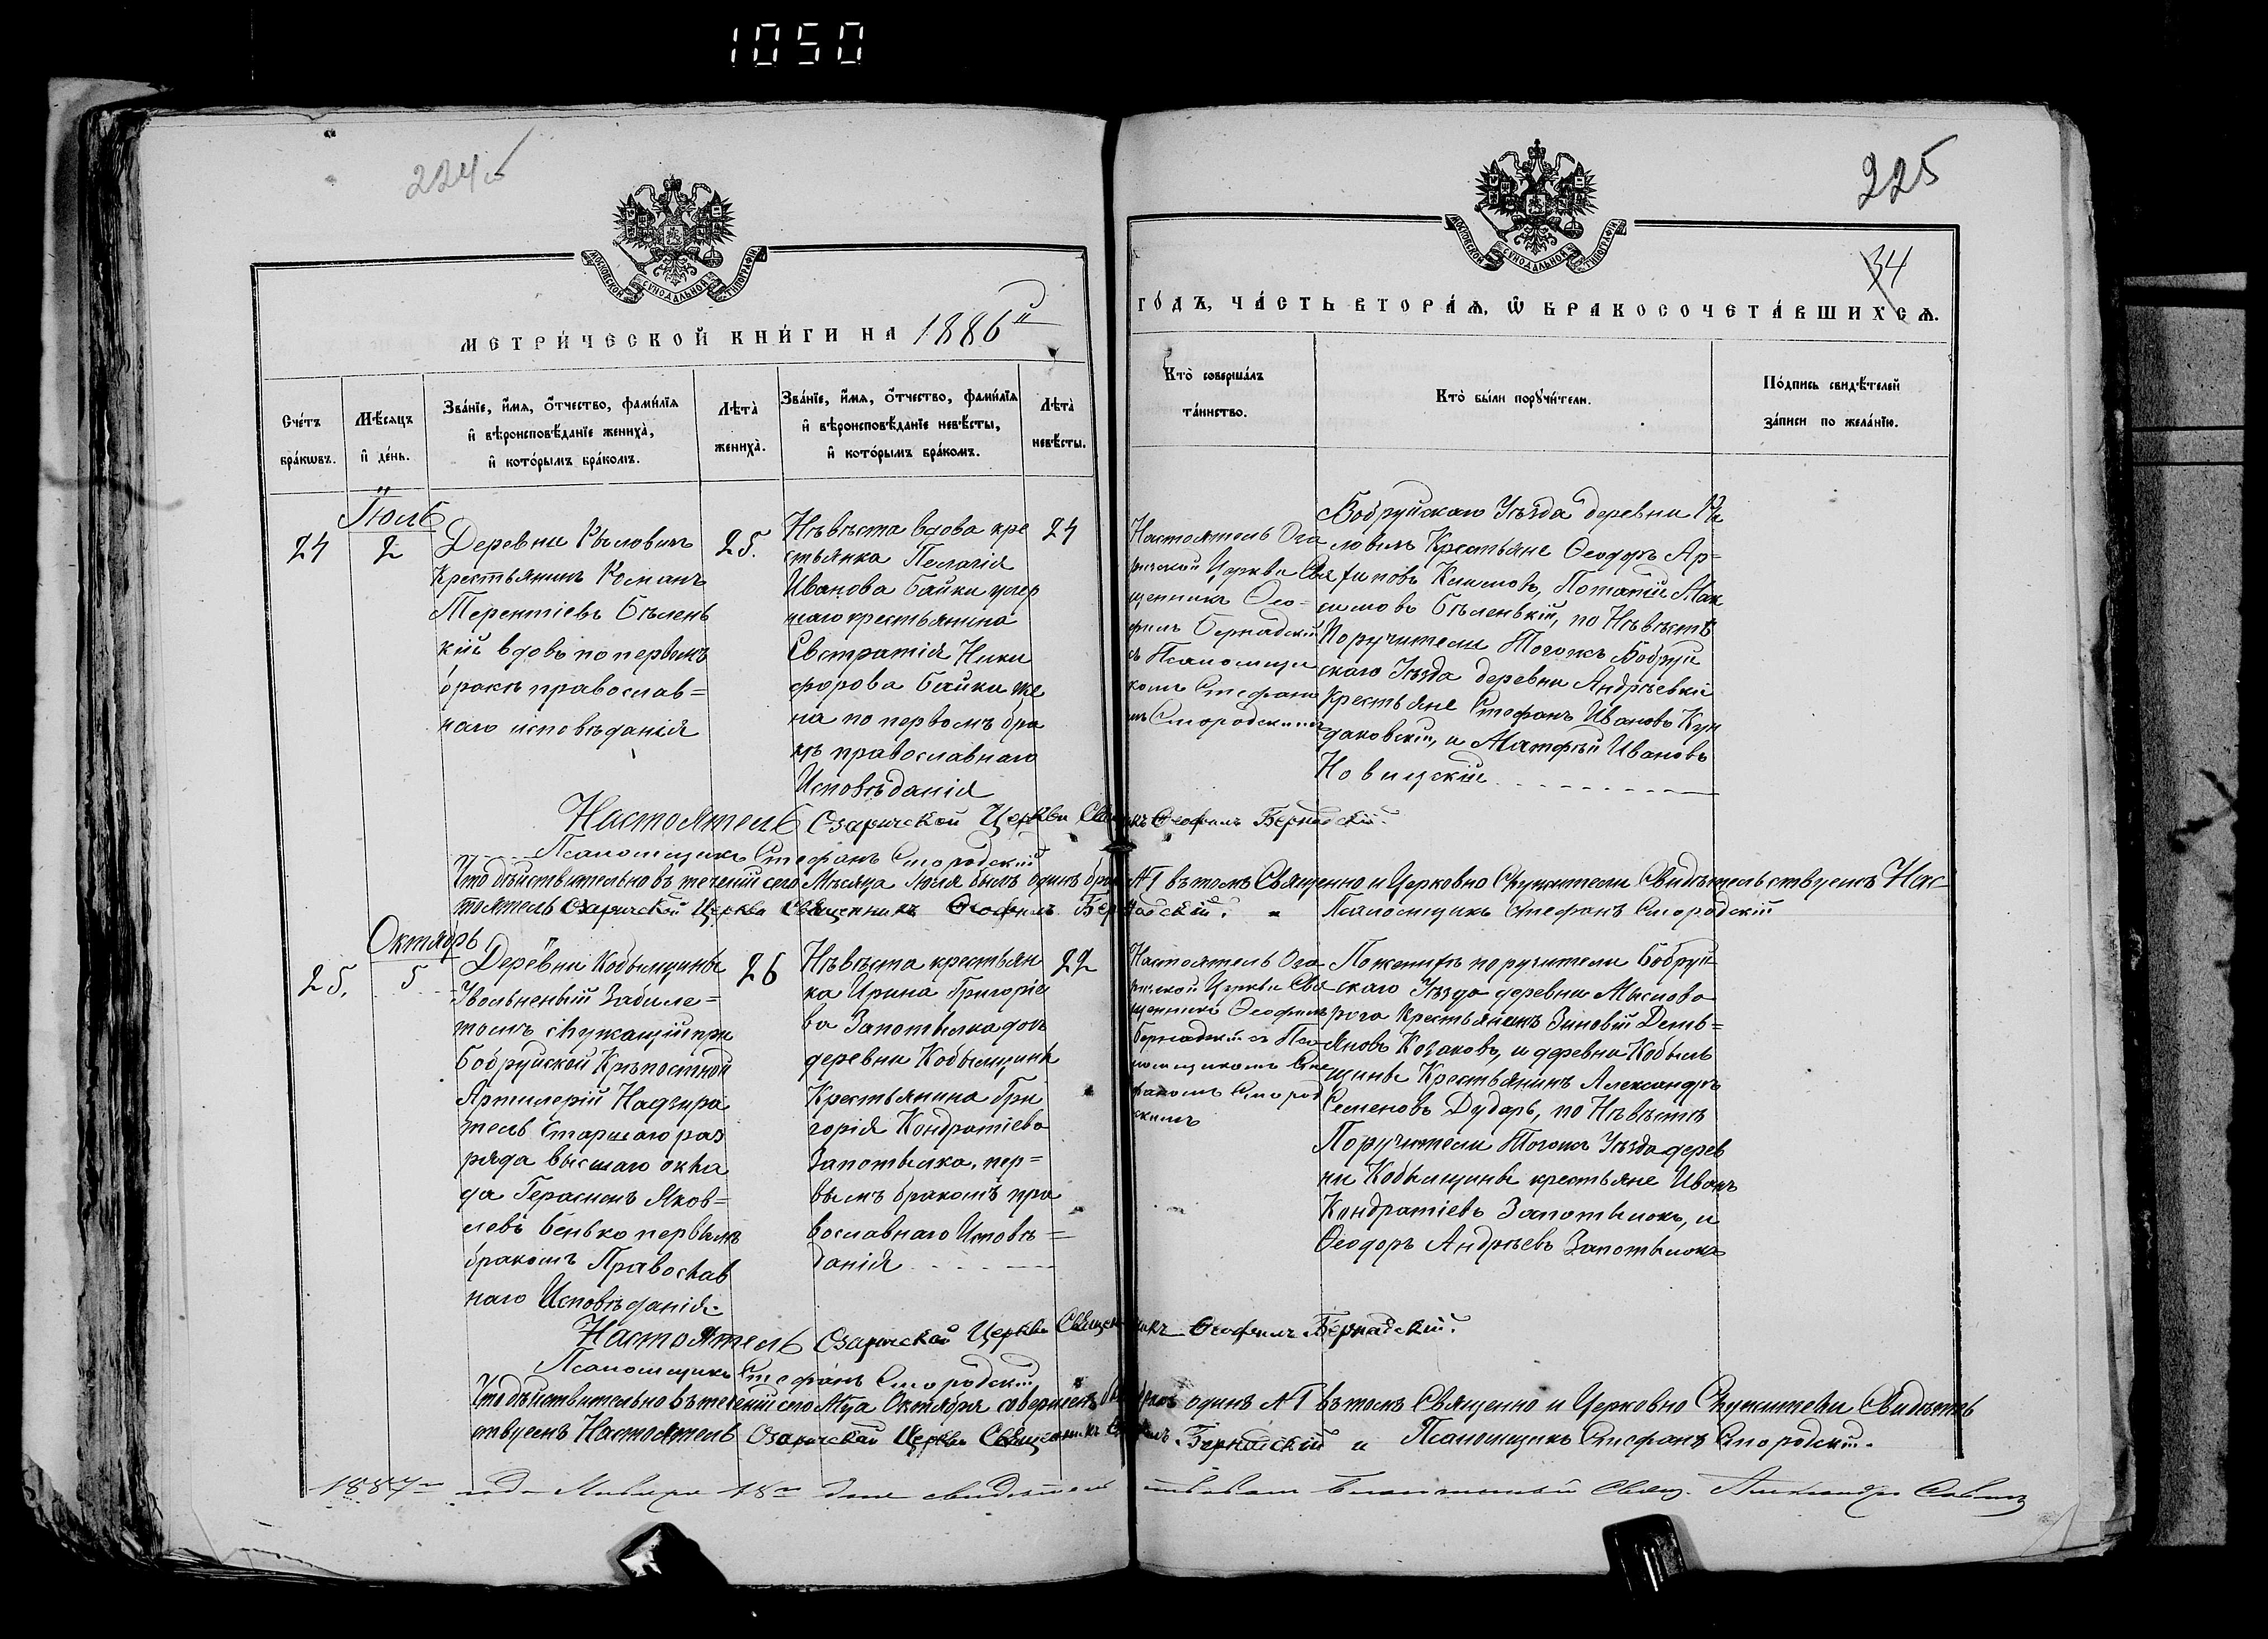 1050
224 б
225
34
МОСКОВСКОЙ СѴНОДАЛЬНОЙ ТИПОГРАФІИ
МОСКОВСКОЙ СѴНОДАЛЬНОЙ ТИПОГРАФІИ
МЕТРИ́ЧЕСКОЙ КНИ́ГИ НА 1886й
ГО́ДЪ, ЧА́СТЬ ВТОРА́Ѧ, Ѿ БРАКОСОЧЕТА́ВШИХСѦ.
Сче́тъ бра́кѡвъ.
Мѣ́сяцъ и҆ де́нь.
Зва́нїе, и҆́мя, о҆́тчество, фами́лїя
и҆ вѣроисповѣ́данїе жениха̀,
и҆ кото́рымъ бра́комъ.
Лѣта̀ жениха̀.
Зва́нїе, и҆́мя, о҆́тчество, фами́лїя
и҆ вѣроисповѣ́данїе невѣ́сты,
и҆ кото́рымъ бра́комъ.
Лѣта̀ невѣ́сты.
Кто̀ соверша́лъ
та́инство.
Кто̀ бы́ли порꙋчи́тели.
По́дпись свидѣ́телей
за́писи по жела́нїю.
Іюль
24
2
Деревни
Крестьянинъ Романъ
Терентіевъ Бѣлень
кій вдовъ по первомъ
бракѣ православ=
наго исповѣданія
25.
Невѣста вдова кре
стьянка Пелагія
Иванова Байки умер
шаго крестьянина
Евстратія Ники
форова Байки же
на по первомъ бра
кѣ православнаго
Исповѣданія
24
Настоятель Оза
ричской Церкви Свя
щенникъ Ѳео=
филъ Бернадскій
съ Псаломщи
комъ Стефано
мъ Смородскимъ
Бобруйскаго Уѣзда деревни
ловичъ Крестьяне Ѳеодоръ Ар=
хиповъ Климовъ, Потапій Мак
симовъ Бѣленькій, по Невѣстѣ
Поручители Тогожъ Бобруй
скаго Уѣзда деревни Андрѣевки
Крестьяне Стефанъ Ивановъ Кун
даковскій, и Матфѣй Ивановъ
Новицкій
Настоятель Озаричской Церкви Священникъ Ѳеофилъ Бернадскій.
Псаломщикъ Стефанъ Смородскій
Что дѣйствительно въ теченіи сего Мѣсяца Іюля былъ одинъ бракъ №1 въ томъ Священно и Церковно Служители Свидѣтельствуемъ Нас=
тоятель Озаричской Церкви Священникъ Ѳеофилъ Бернадскій. и Псаломщикъ Стефанъ Смородскій
Октябрь
25.
5
Деревни Кобыльщины
Уволненный Забиле=
томъ служащій при
Бобруйской Крѣпостной
Артилеріи Надзира
тель Старшаго раз
ряда высшаго окла
да Герасимъ Яков=
левъ Бенько первымъ
бракомъ Православ
наго Исповѣданія.
26
Невѣста крестьян
ка Ирина Григорье
ва Запотылка дочь
деревни Кобыльщины
Крестьянина Гри
горія Кондратіева
Запотылка, пер=
вымъ бракомъ пра
вославнаго Исповѣ=
данія
22
Настоятель Оза
ричской Церкви Свя
щенникъ Ѳеофилъ
Бернадскій съ Пса
ломщикомъ Сте
фаномъ Смород
скимъ
По женихѣ поручители Бобруй
скаго Уѣзда деревни Мыслова
рога Крестьянинъ Зиновій Демь=
яновъ Козаковъ, и деревни Кобыль
щины Крестьянинъ Александръ
Семеновъ Дударь, по Невѣстѣ
Поручители Тогожъ Уѣзда дерев
ни Кобыльщины крестьяне Иванъ
Кондратіевъ Запотылокъ, и
Ѳеодоръ Андрѣевъ Запотылокъ
Настоятель Озаричской Церкви Священникъ Ѳеофилъ Бернадскій.
Псаломщикъ Стефанъ Смородскій
Что дѣйствительно въ теченіи сего М҃ца Октября совершенъ бракъ одинъ №1 въ томъ Священно и Церковно Служители Свидѣтель
ствуемъ Настоятель Озаричской Церкви Священникъ Ѳеофилъ Бернадскій и Псаломщикъ Стефанъ Смородскій.
1887го года Января 18го дня свидѣтельствовалъ Благочинный Свящ. Александръ Савичъ